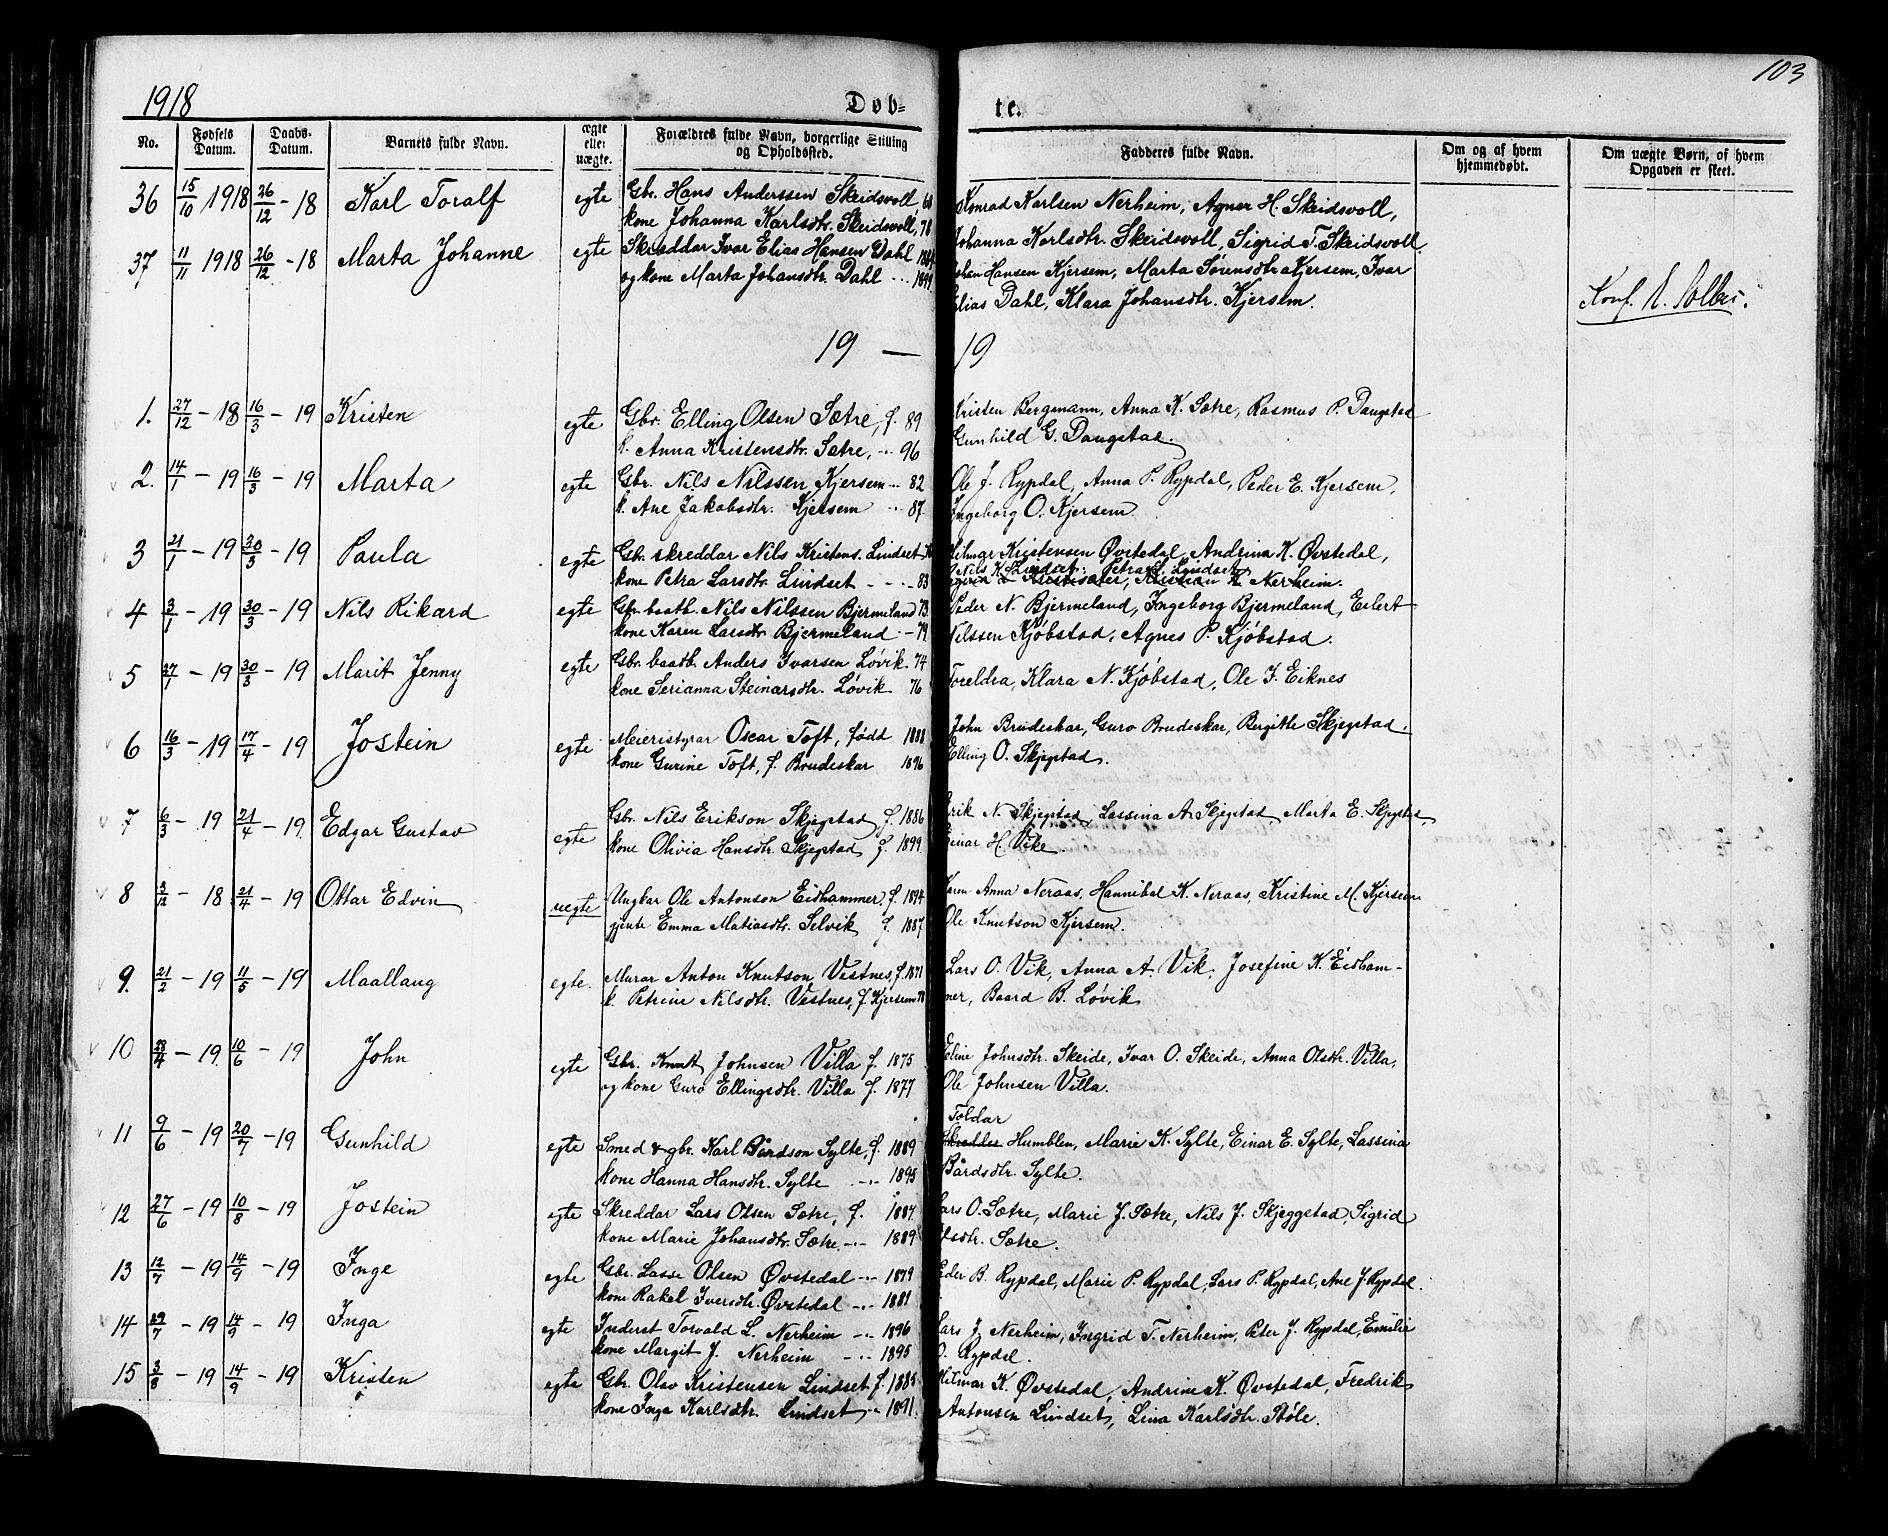 1918 Døb-
te. 103
No. Fødsels Datum. Daabs-Datum. Barnets fulde Navn. ægte eller uægte. Forældres fulde Navn, borgerlige Stilling og Opholdssted. Fadderes fulde Navn. Om og af hvem hjemmedøbt. Om uægte Børn, af hvem Opgaven er skeet.
36 15/10 1918 26/12 - 18 Karl Toralf egte Gbr. Hans Anderssen Skeidsvoll, 68 Konrad Karlsen Nerheim, Agnes H. Skeidsvoll,
kone Johanna Karlsdtr. Skeidsvoll, 78 Johanna Karlsdtr. Skeidsvoll, Sigrid T. Skeidsvoll
37 11/11 1918 26/12 - 18 Marta Johanne egte Skreddar Ivar Elias Hansen Dahl Johan Hansen Kjersem, Marta Sørensdtr. Kjersem, Ivar
og kone Marta Johansdtr. Dahl Elias Dahl, Klara Johansdtr. Kjersem.
Konf. N. Solbu.
19 — 19
1. 27/12 - 18 16/3 - 19 Kristen egte Gbr. Elling Olsen Sætre, f. 89 Kristen Bergmann, Anna K. Sætre, Rasmus P. Daugstad
k. Anna Kristensdtr. Sætre, -.- 96 Gunhild G. Daugstad.
2. 14/1 - 19 16/3 - 19 Marta egte Gbr. Nils Nilssen Kjersem -.- 82 Ole J. Rypdal, Anna P. Rypdal, Peder E. Kjersem,
k. Ane Jakobsdtr. Kjersem -.- 87. Ingeborg O. Kjersem
3 21/1 - 19 30/3 - 19 Paula egte Gbr. skreddar Nils Kristens. Lindset Hilmar Kristensen Øvstedal, Andrina K. Øvstedal,
Nils K. Lindset, Petra L. Lindset
kone Petra Larsdtr. Lindset - - .- 83 Kristian K. Nerheim.
4 3/1 - 19 30/3 - 19 Nils Rikard egte Gbr. baatb. Nils Nilssen Bjermeland 73. Peder N. Bjermeland, Ingeborg Bjermeland, Eilert
kone Karen Larsdtr. Bjermeland - 79. Nilssen Kjøbstad, Agnes P. Kjøbstad.
5 27/1 - 19 30/3 - 19 Marit Jenny egte Gbr. baatb. Anders Ivarsen Løvik. 74 Foreldra, Klara N. Kjøbstad, Ole I. Eiknes
kone Serianna Steinarsdtr. Løvik 76
6 16/3 - 19 17/4 - 19 Jostein egte Meieristyrar Oscar Toft, fødd 1888 John Brudeskar, Guro Brudeskar, Bergitte Skjegstad.
kone Gurine Toft, f. Brudeskar 1896 Elling O. Skjegstad.
7 6/3 - 19 21/4 - 19. Edgar Gustav egte Gbr. Nils Erikson Skjegstad f. 1886 Erik N. Skjegstad, Lassina A. Skjegstad, Marta E. Skjegstad,
kone Olivia Hansdtr. Skjegstad f. 1899. Einar H. Vike.
8 3/12 - 18 21/4 - 19 Ottar Edvin uegte Ungkar Ole Antonson Eidhammer, f. 1894 Karen Anna Neraas, Hannibal K. Neraas, Kristine M. Kjersem
gjente Emma Matiasdtr. Selvik f. 1887 Ole Knutson Kjersem.
9. 21/2 - 19 11/5 - 19 Maallaug egte. Murar Anton Knutson Vestnes, f. 1871 Lars O. Vik, Anna A. Vik, Josefine K. Eidham-
k. Petrine Nilsdtr. Vestnes, f. Kjersem 78 mer, Baard B. Løvik
10 28/4 - 19. 10/6 - 19 John egte Gbr. Knut Johnsen Villa f. 1875 Eline Johnsdtr. Skeide, Ivar O. Skeide, Anna Olsdtr. Villa,
og kone Guro Ellingsdtr. Villa f. 1877 Ole Johnsen Villa.
Toldar
11 9/6 - 19 20/7 - 19 Gunhild egte Smed & gbr. Karl Bårdson Sylte, f. 1889 Skredder Humblen, Marie K. Sylte, Einar E. Sylte, Lassina
kone Hanna Hansdtr. Sylte -.- 1895 Bårdsdtr. Sylte.
12 27/6 - 19 10/8 - 19 Jostein egte Skreddar Lars Olsen Sætre, f. 1887. Lars O. Sætre, Marie J. Sætre, Nils J. Skjeggstad, Sigrid
kone Marie Johansdtr. Sætre -.- 1889 Olsdtr. Sætre.
13 12/7 - 19 14/9 - 19 Inge egte Gbr. Lasse Olsen Øvstedal -.- 1879 Peder B. Rypdal, Marie P. Rypdal, Lars P. Rypdal, Ane J. Rypdal.
kone Rakel Iversdtr. Øvstedal -.- 1881
14 29/7 - 19 14/9 - 19 Inga egte Inderst Torvald L. Nerheim -.- 1896 Lars J. Nerheim, Ingrid T. Nerheim, Peter J. Rypdal, Emilie
kone Margit J. Nerheim -.- 1895 O. Rypdal.
15 3/8 - 19 14/9 - 19 Kristen egte Gbr. Olav Kristensen Lindset f. 1885 Hilmar K. Øvstedal, Andrine K. Øvstedal, Fredrik
kone Inga Karlsdtr. Lindset -.- 1891. Antonsen Lindset, Lina Karlsdtr. Støle.